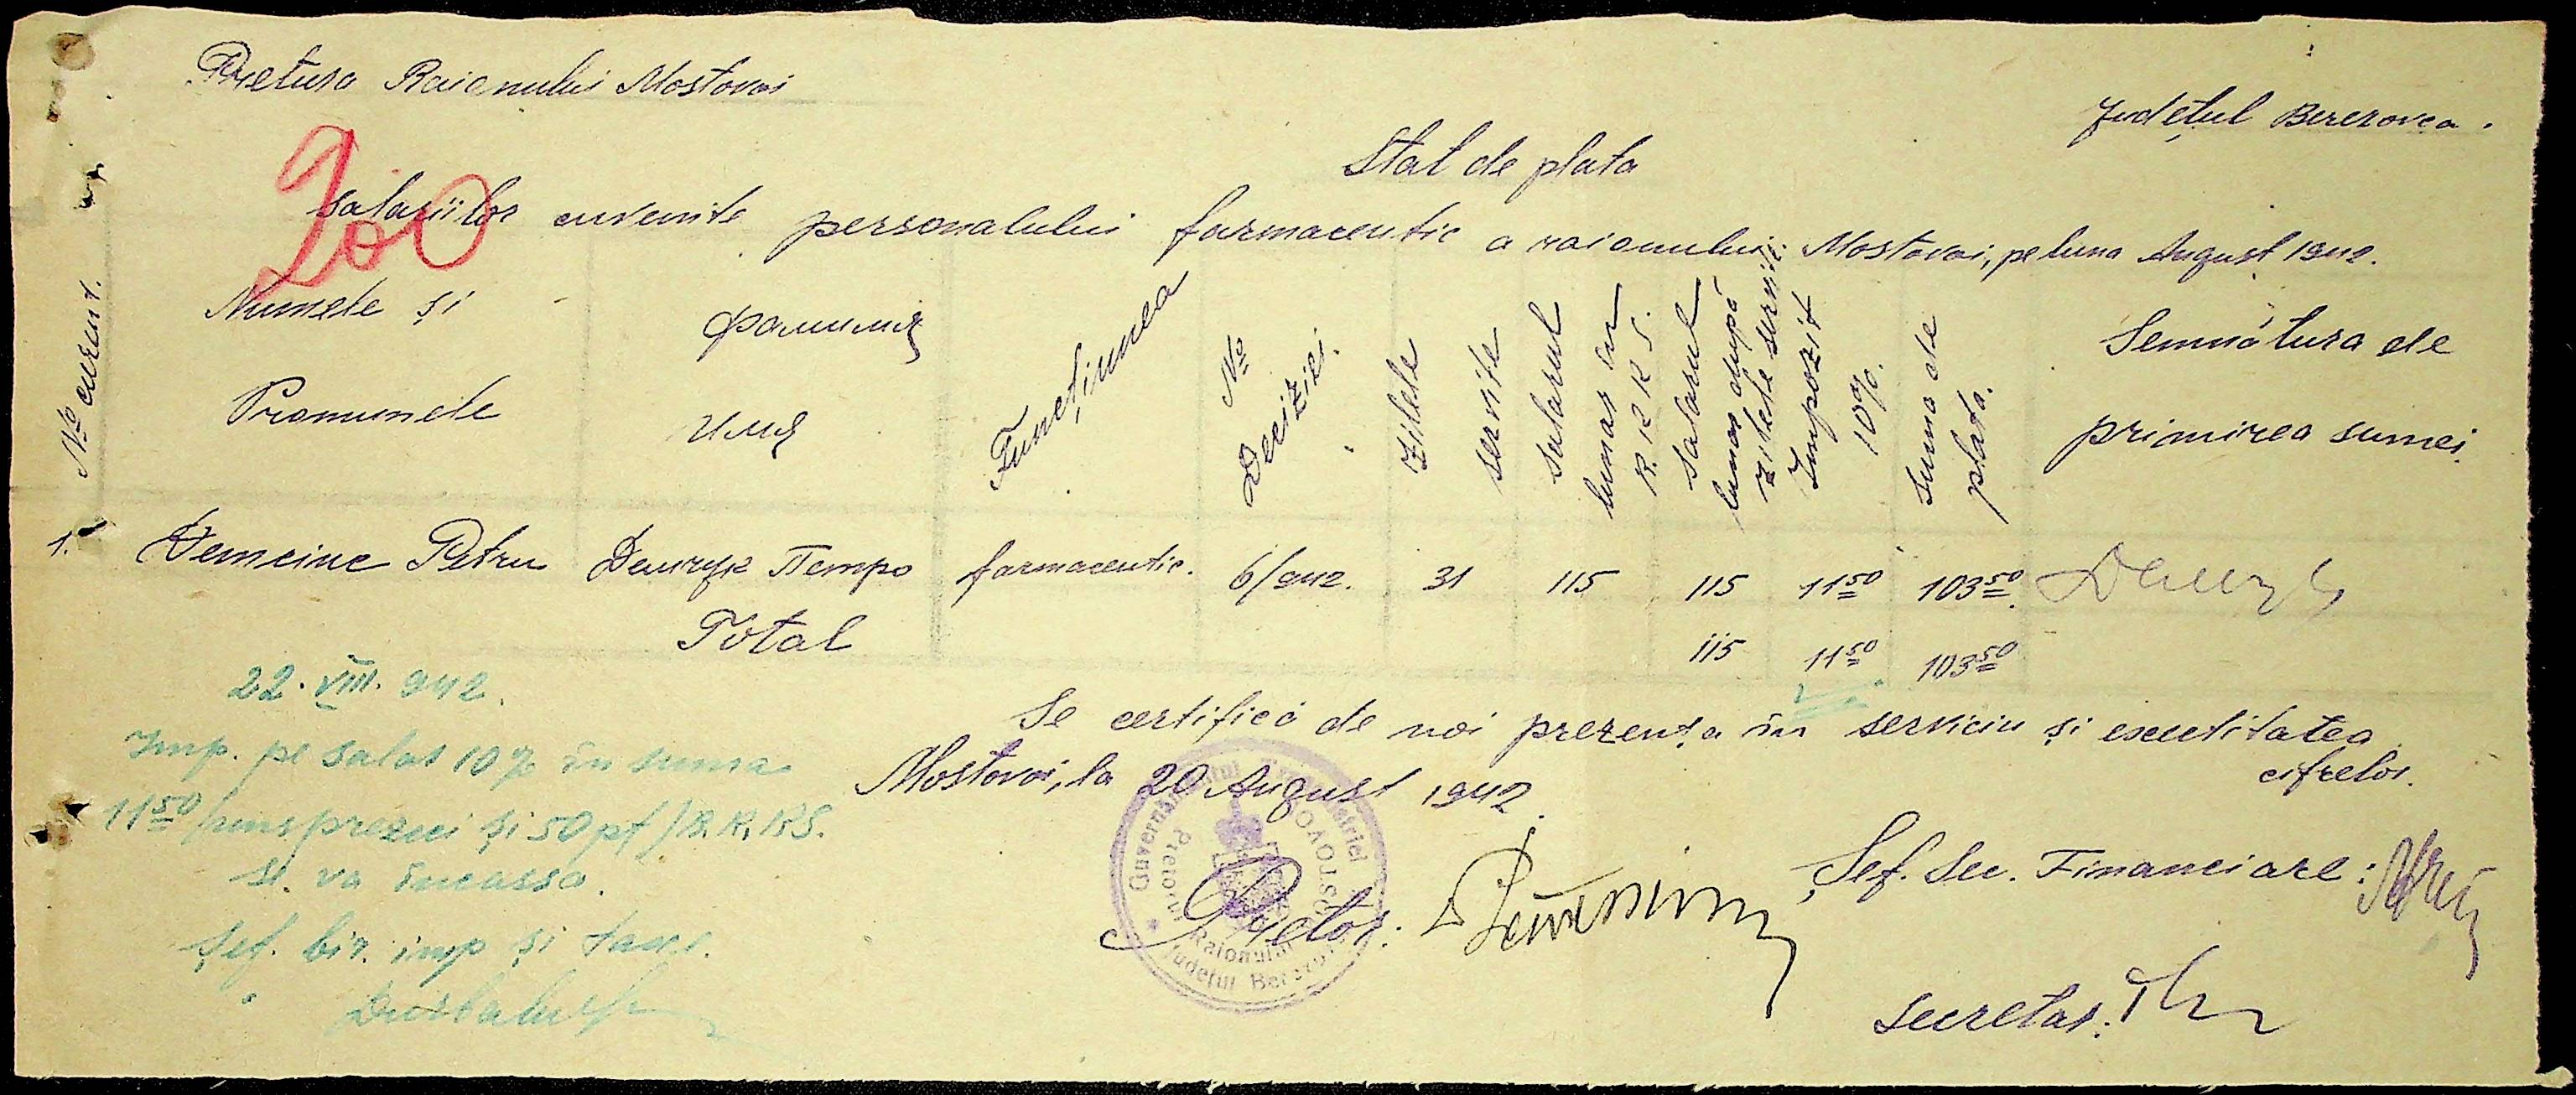 Pretura Raionului Mostovoi
Județul Berezovca.
200
Stat de plata
salariilor cuvenite personalului farmaceutic a raionului: Mostovoi, pe luna August 1942.
No curent.
Numele și
Pronumele
Фамилия
Имя
Funcțiunea
No
Deciziei.
Zilele
servite
Salarul
lunar în
R.K.K.S.
Salarul
lunar după
zilele servite
Impozit
10%.
Suma de
plata.
Semnătura de
primirea sumei.
1. Demciuc Petru Демчук Петро farmaceutic. 6/942. 31 115 115 11 50 103 50 Демчук
Total 115 11 50 103 50
22. VIII. 942.
Imp. pe salar 10% în suma
11 50 /unsprezeci și 50 pf/ R.K.KS.
se va încassa.
Șef. bir. imp și taxe.
Se certifică de noi prezența în serviciu și exactitatea
cifrelor.
Mostovoi, la 20 August 1942.
Guvernământul Transnistriei
Județul Berezovca
Pretorul Raionului
MOSTOVOI
Pretor:
Șef. Sec. Financiare:
Secretar: